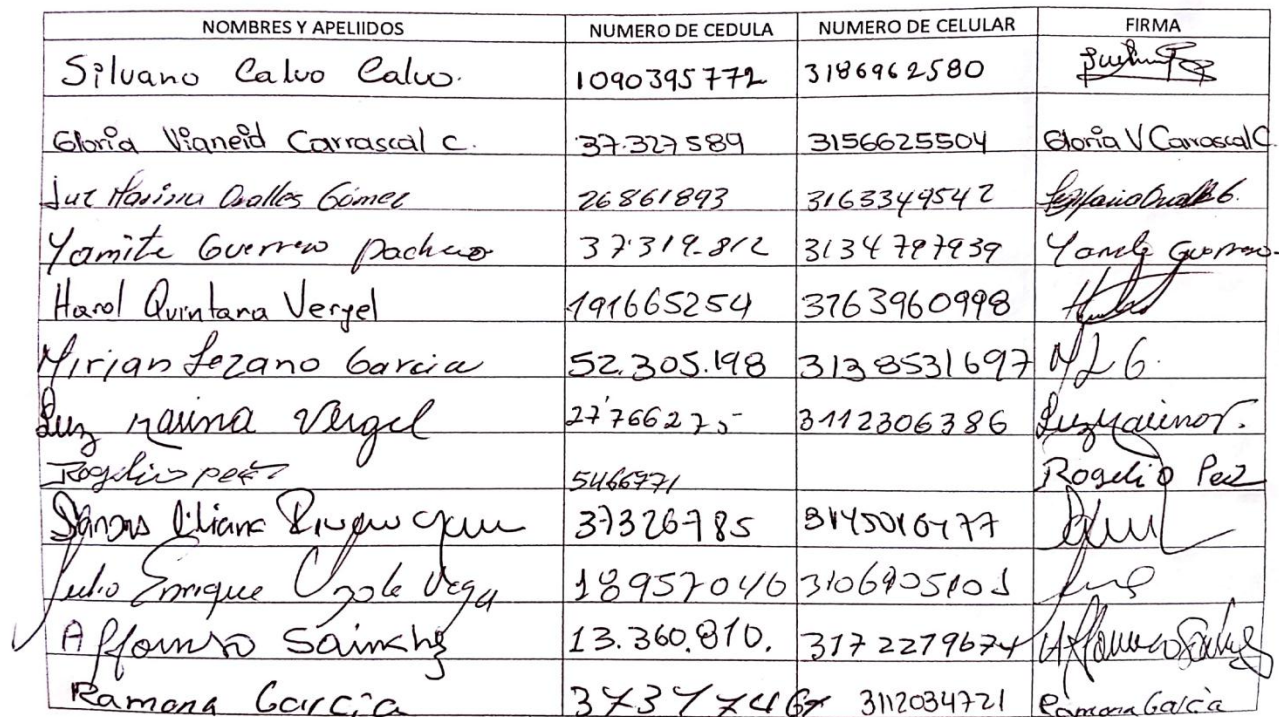 NOMBRES Y APELIIDOS NUMERO DE CEDULA NUMERO DE CELULAR FIRMA
Silvano Calvo Calvo. 1090395772 3186962580
Gloria Vianeid Carrascal C. 37.327589 3156625504 Gloria V Carrascal C.
Luz Marina Ovalles Gómez 26861893 3163349542
Yamite Guerrero pacheco 37319.812 3134797939 Guerrero.
Harol Quintana Vergel 191665254 3763960998
Mirian Lozano Garcia 52.305.198 3138531697 M L G.
Luz Marina Vergel 27'766275 3112306386 Luz Marina V.
Rogelio peez 5466771 Rogelio Peez
Liliana 37326785 3145016477
Julio Enrique Vega 18957040 3106905101
Alfonso Sainchz 13.360.810. 3172279674
Ramona García 3112034721 Ramona García